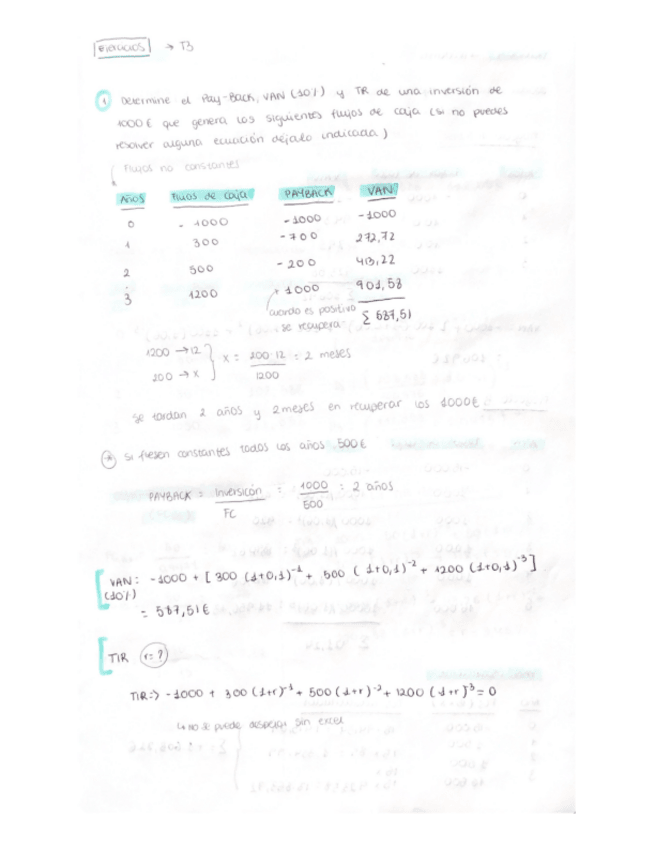 Ejercicios → T3
1 Determine el Pay-Back, VAN (10%) y TIR de una inversión de
1000€ que genera los siguientes flujos de caja (si no puedes
resolver alguna ecuación déjalo indicada)
Flujos no constantes
Años Flujos de caja PAYBACK VAN
0 - 1000 - 1000 - 1000
1 300 - 700 272,72
2 500 - 200 413,22
3 1200 + 1000 901,58
cuando es positivo
se recupera
Σ 587,51
1200 → 12
200 → x
x = 200·12 / 1200 = 2 meses
Se tardan 2 años y 2 meses en recuperar los 1000€
* Si fuesen constantes todos los años 500€
PAYBACK = Inversión / FC = 1000 / 500 = 2 años
VAN = -1000 + [300 (1+0,1)⁻¹ + 500 (1+0,1)⁻² + 1200 (1+0,1)⁻³]
(10%)
= 587,51€
TIR r=?
TIR => -1000 + 300 (1+r)⁻¹ + 500 (1+r)⁻² + 1200 (1+r)⁻³ = 0
↳ no se puede despejar sin excel